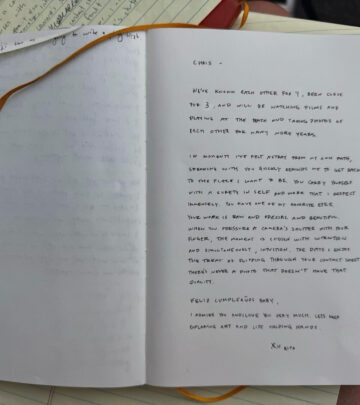 CHRIS -
WE'VE KNOWN EACH OTHER FOR 7, BEEN CLOSE
FOR 3, AND WILL BE WATCHING FILMS AND
PLAYING AT THE BEACH AND TAKING PHOTOS OF
EACH OTHER FOR MANY MORE YEARS.
IN MOMENTS I'VE FELT ASTRAY FROM MY OWN PATH,
SPEAKING WITH YOU QUICKLY REMINDS ME TO GET BACK
TO THE PLACE I WANT TO BE. YOU CARRY YOURSELF
WITH A SURETY IN SELF AND WORK THAT I RESPECT
IMMENSELY. YOU HAVE ONE OF MY FAVORITE EYES.
YOUR WORK IS RAW AND SPECIAL AND BEAUTIFUL.
WHEN YOU PRESSURE A CAMERA'S SHUTTER WITH YOUR
FINGER, THE MOMENT IS CHOSEN WITH INTENTION
AND SIMULTANEOUSLY, INTUITION. THE DAYS I ENJOY
THE TREAT OF FLIPPING THROUGH YOUR CONTACT SHEETS
THERE'S NEVER A PHOTO THAT DOESN'T HAVE THAT
QUALITY.
FELIZ CUMPLEAÑOS BABY,
I ADMIRE YOU AND LOVE YOU VERY MUCH. LETS KEEP
EXPLORING ART AND LIFE HOLDING HANDS.